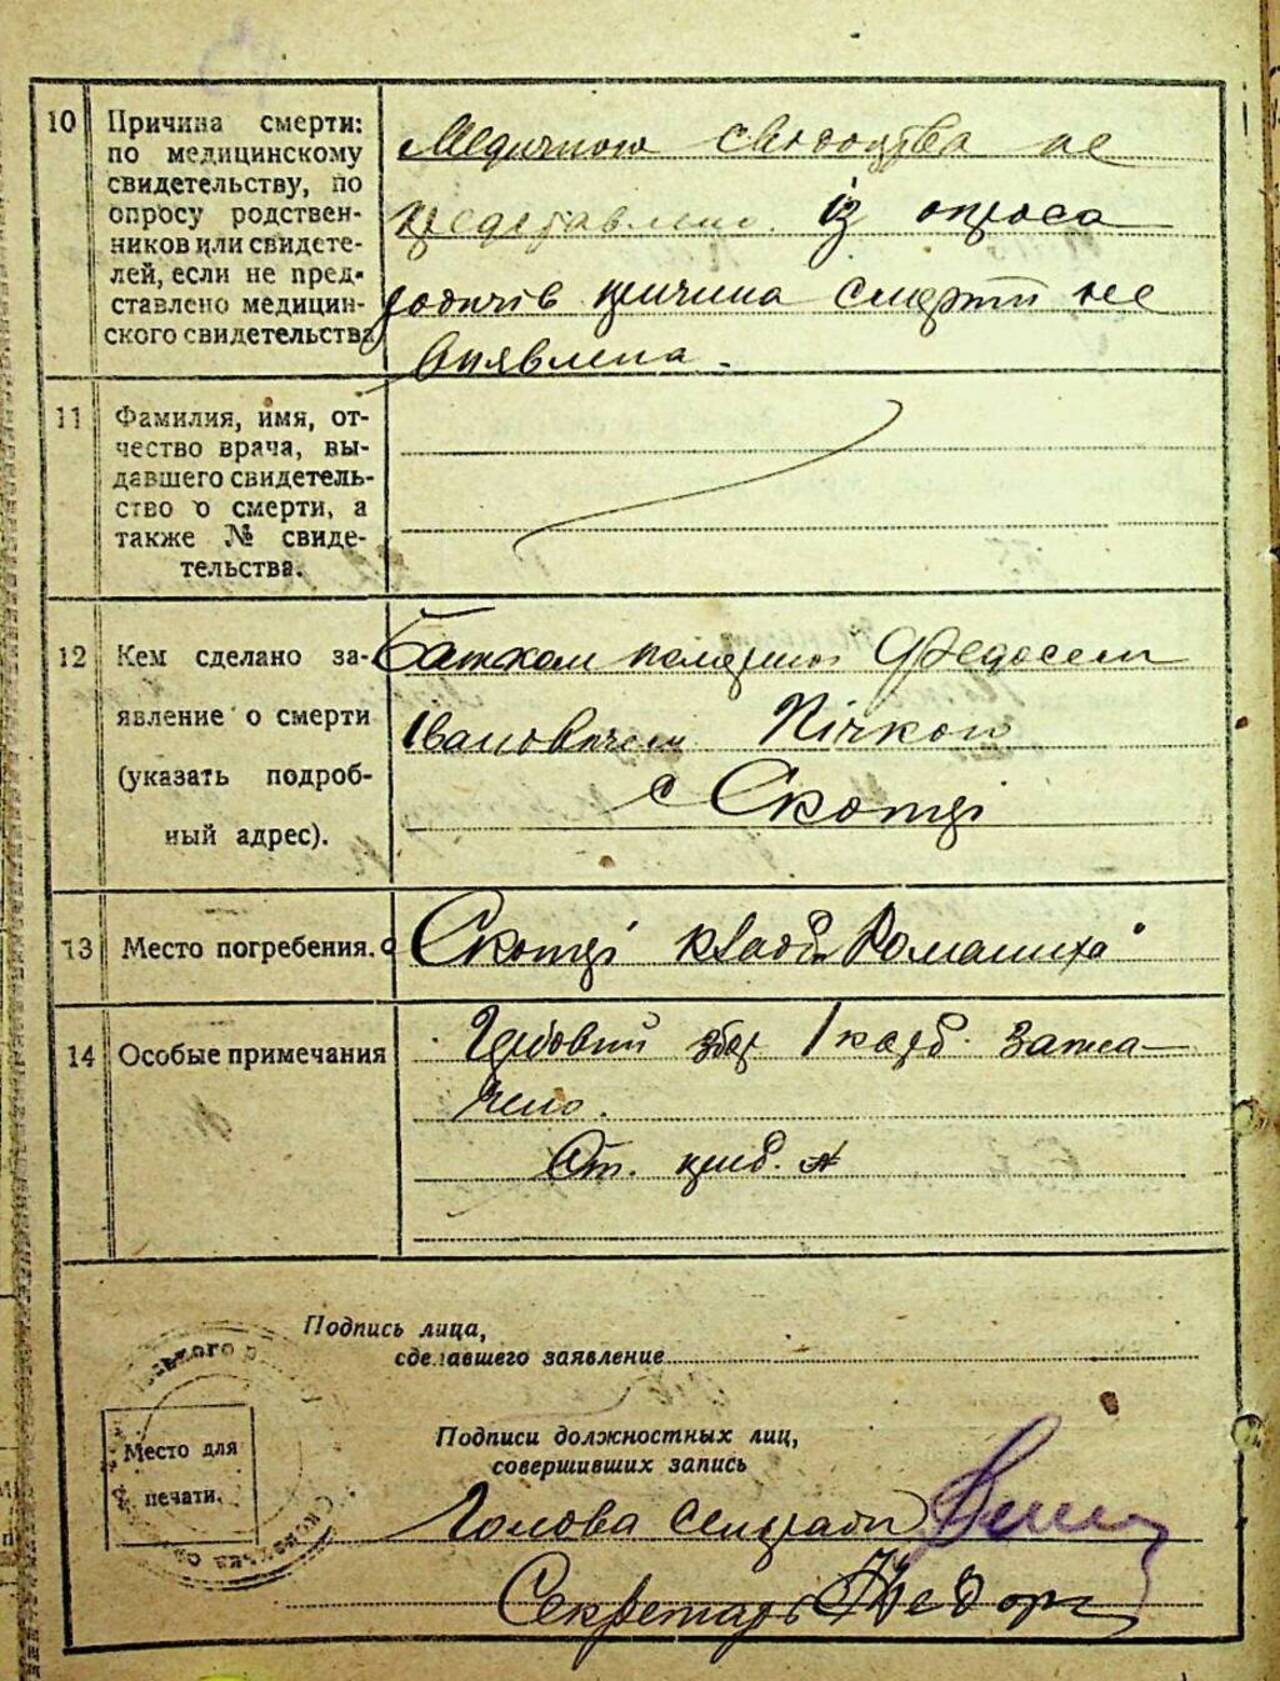 10
Причина смерти:
по медицинскому
свидетельству, по
опросу родствен-
ников или свидете-
лей, если не пред-
ставлено медицин-
ского свидетельства
Медичного свидоцтва не
представлено. із опроса
родичів причина смерти не
виявлена.
11
Фамилия, имя, от-
чество врача, вы-
давшего свидетель-
ство о смерти, а
также № свиде-
тельства.
12
Кем сделано за-
явление о смерти
(указать подроб-
ный адрес).
Батьком Федосеем
Івановичем Пічкою
с
13
Место погребения.
"Ромашиха"
14
Особые примечания
Гербовий збор 1 карб. запла-
чено.
Подпись лица,
сделавшего заявление
Место для
печати.
Подписи должностных лиц,
совершивших запись
Голова сельради
Секретарь